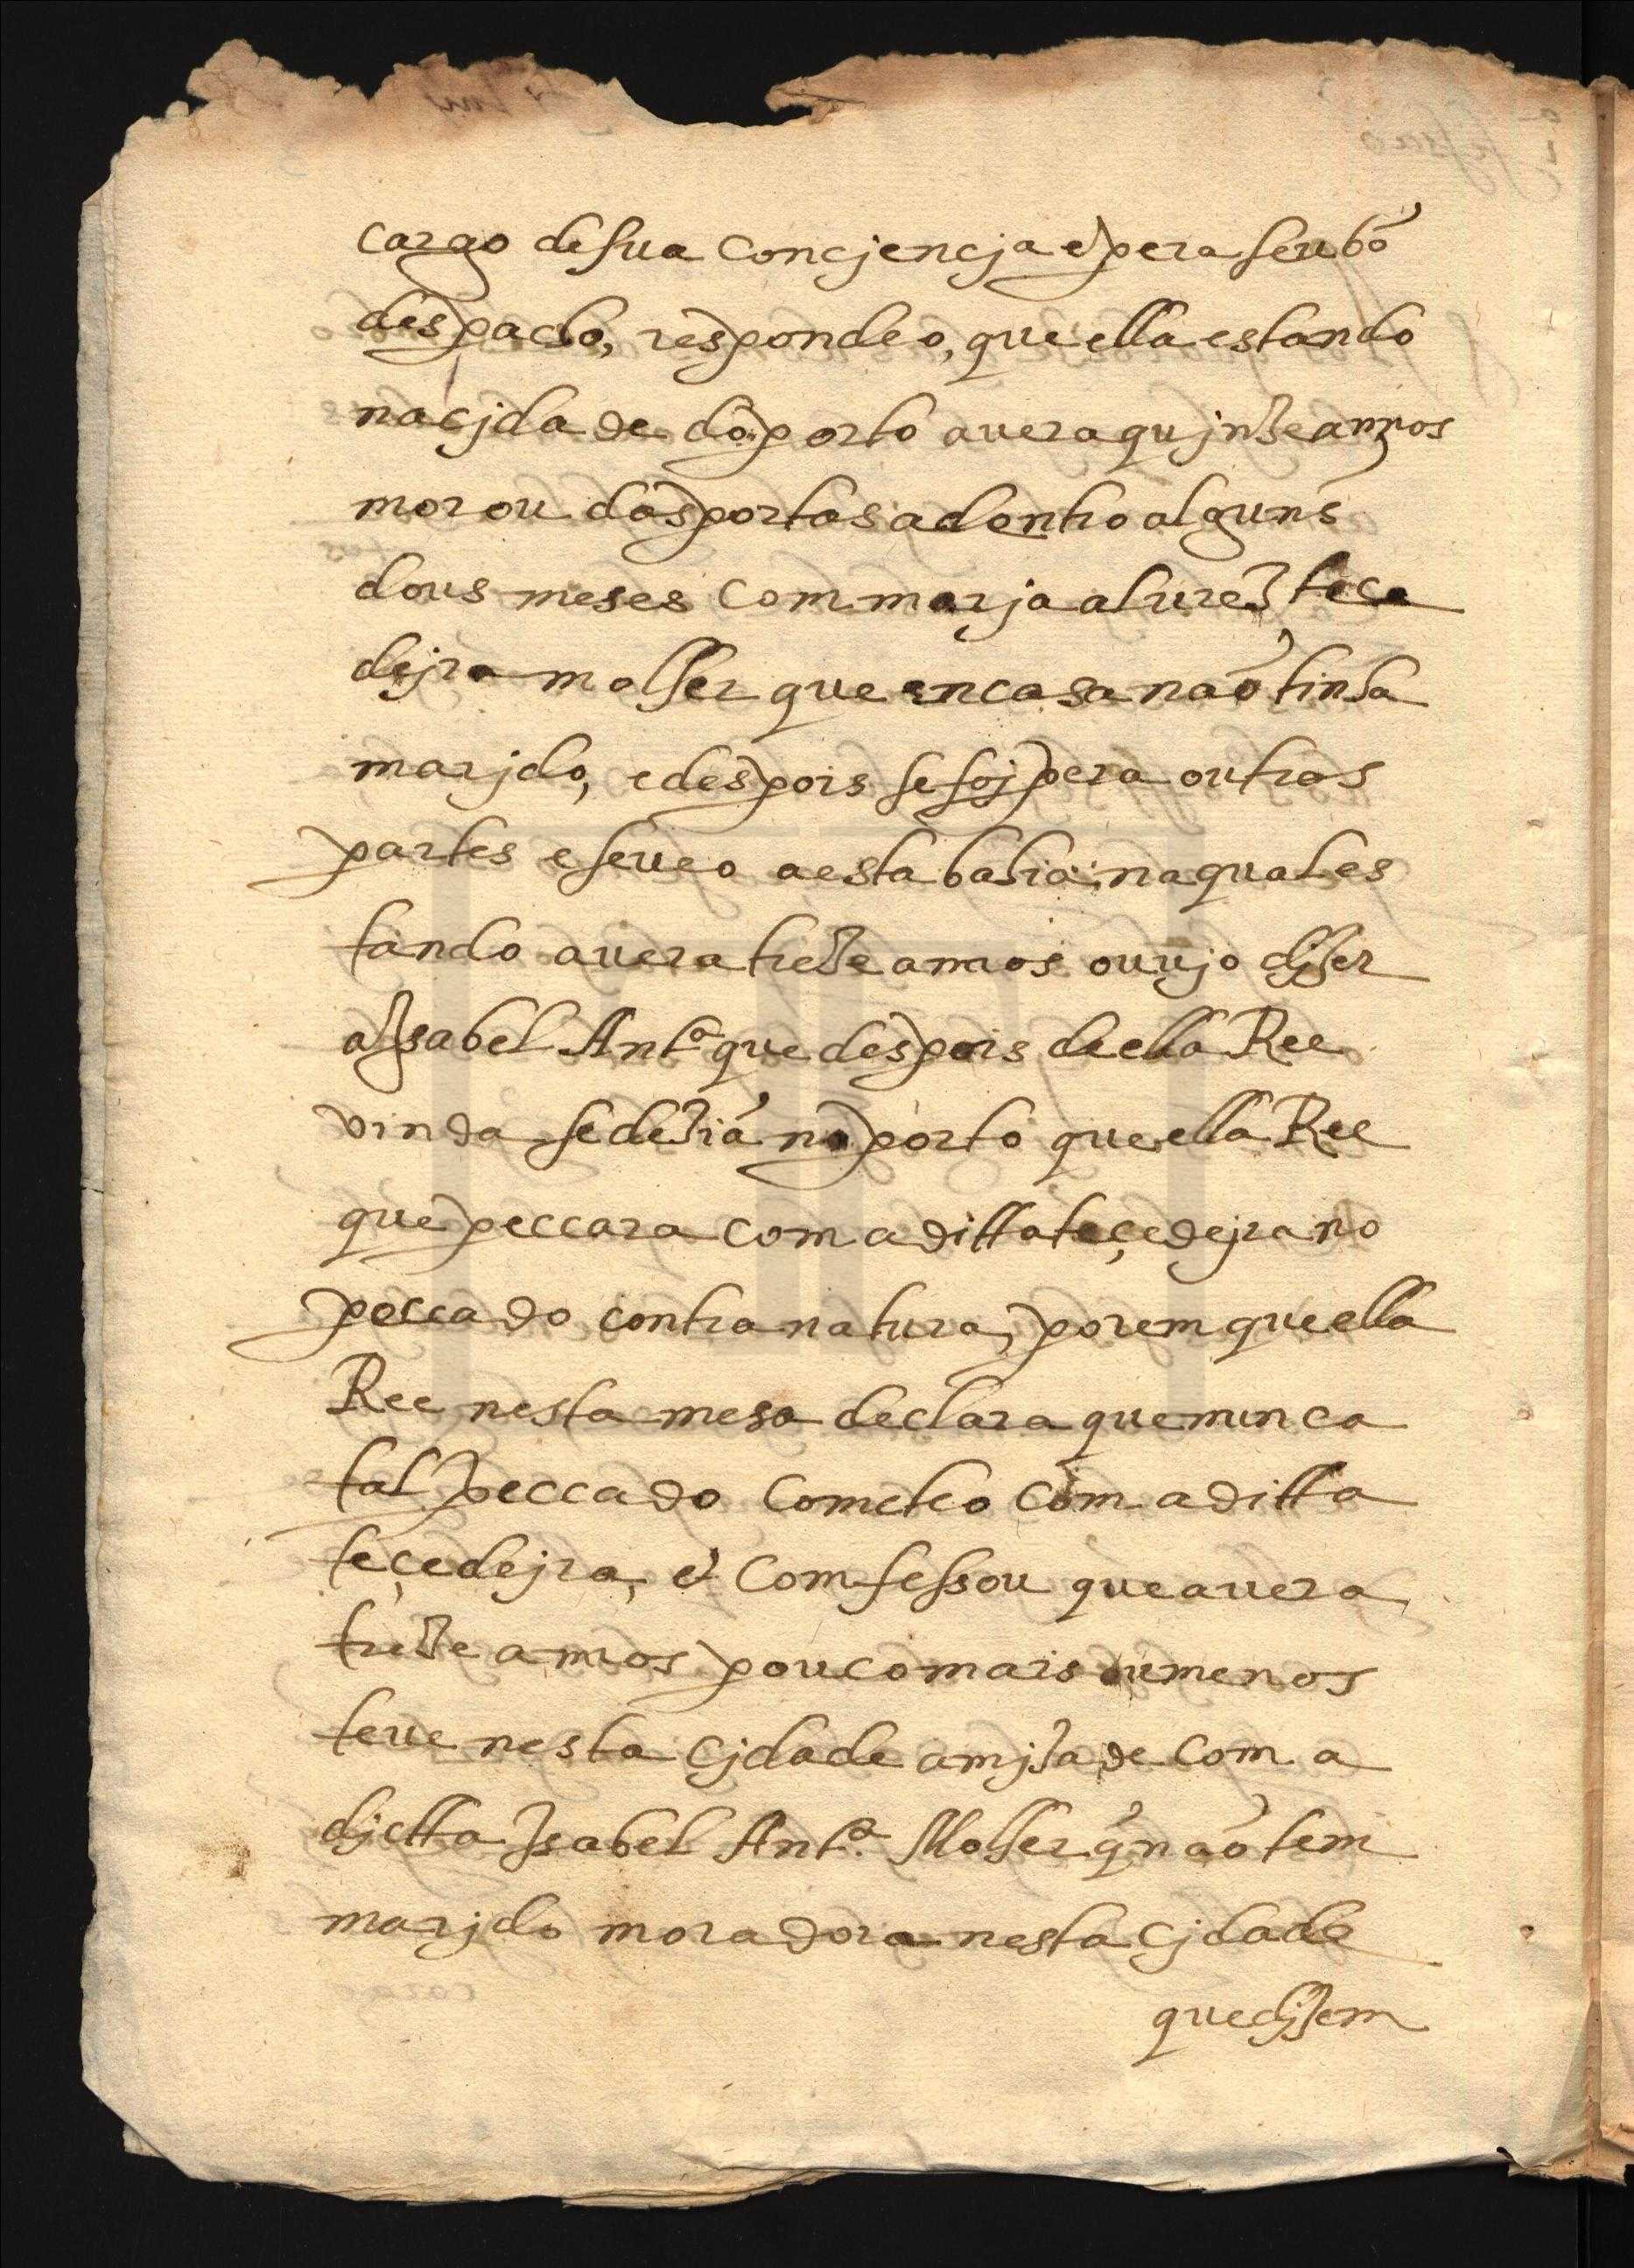 cargo de sua concjencja e pera seu bõ
despacho, respondeo, que ella estando
na cjdade do porto avera quinze annos
morou das portas adentro alguns
dous meses com marja alvrez tece
dejra molher que en casa não tinha
marjdo, e despois se foj pera outras
partes e se veo a esta bahia: na qual es
tando avera treze annos ouujo djzer
a Isabel Antª que despois de ella Ree
vinda se dezia no porto que ella Ree
que peccara com a ditta teçedejra no
peccado contra natura, porem que ella
Ree nesta mesa declara que nunca
tal peccado cometeo com a ditta
teçedejra, e comfessou que avera
treze annos pouco mais ou menos
teve nesta cjdade amjzade com a
djtta Isabel Antª. Molher q̃ não tem
marjdo moradora nesta cjdade
que djzem